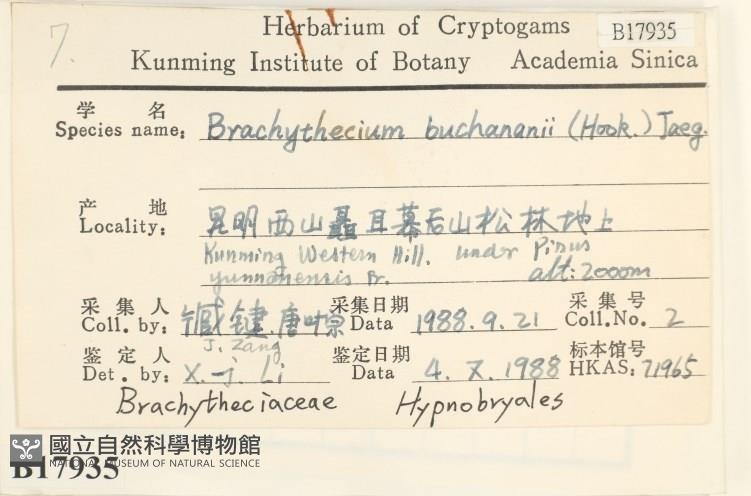 7.
Herbarium of Cryptogams B17935
Kunming Institute of Botany Academia Sinica
学 名
Species name: Brachythecium buchananii (Hook.) Jaeg.
产 地
Locality: 昆明西山聂耳幕后山松林地上
Kunming Western Hill. under Pinus
yunnanensis Fr. alt: 2000m
采 集 人 采集日期 采 集 号
Coll. by: 臧键.唐叶宗 Data 1988.9.21 Coll.No. 2
J. Zang
鉴 定 人 鉴定日期 标本馆号
Det. by: X.-j. Li Data 4. X. 1988 HKAS: 71965
Brachytheciaceae Hypnobryales
國立自然科學博物館
NATIONAL MUSEUM OF NATURAL SCIENCE
B17935